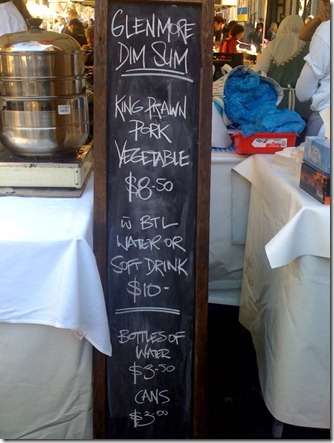 GLENMORE
DIM SUM
KING PRAWN
PORK
VEGETABLE
$8-50
w̄ BTL
WATER OR
SOFT DRINK
$10-
BOTTLES OF
WATER
$3-50
CANS
$3.00